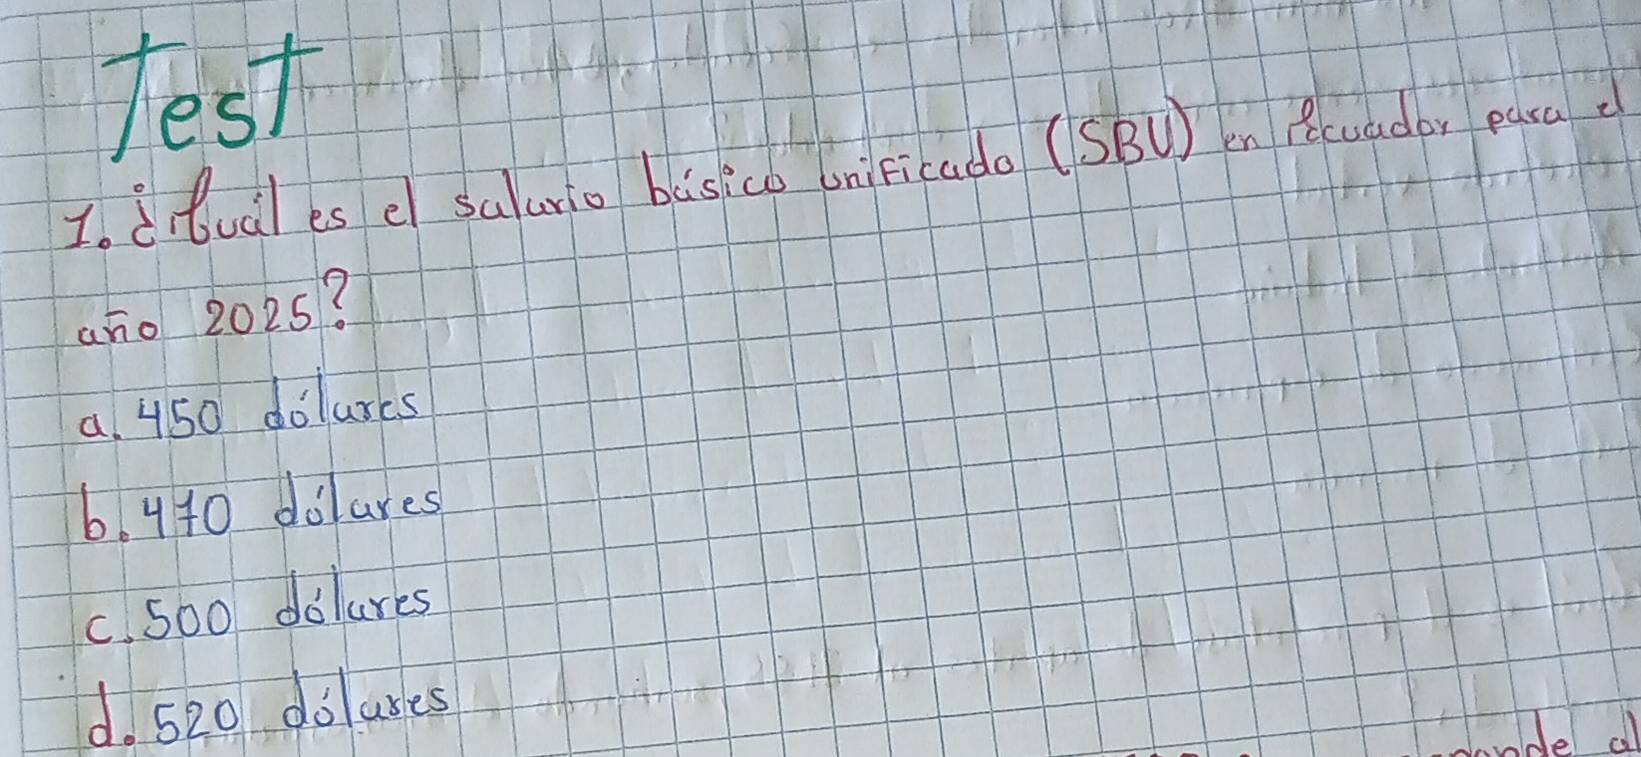 Test
1. ¿Cuál es el salario básico unificado (SBU) en Ecuador para el
año 2025?
a. 450 dólares
b. 470 dólares
c. 500 dólares
d. 520 dólares